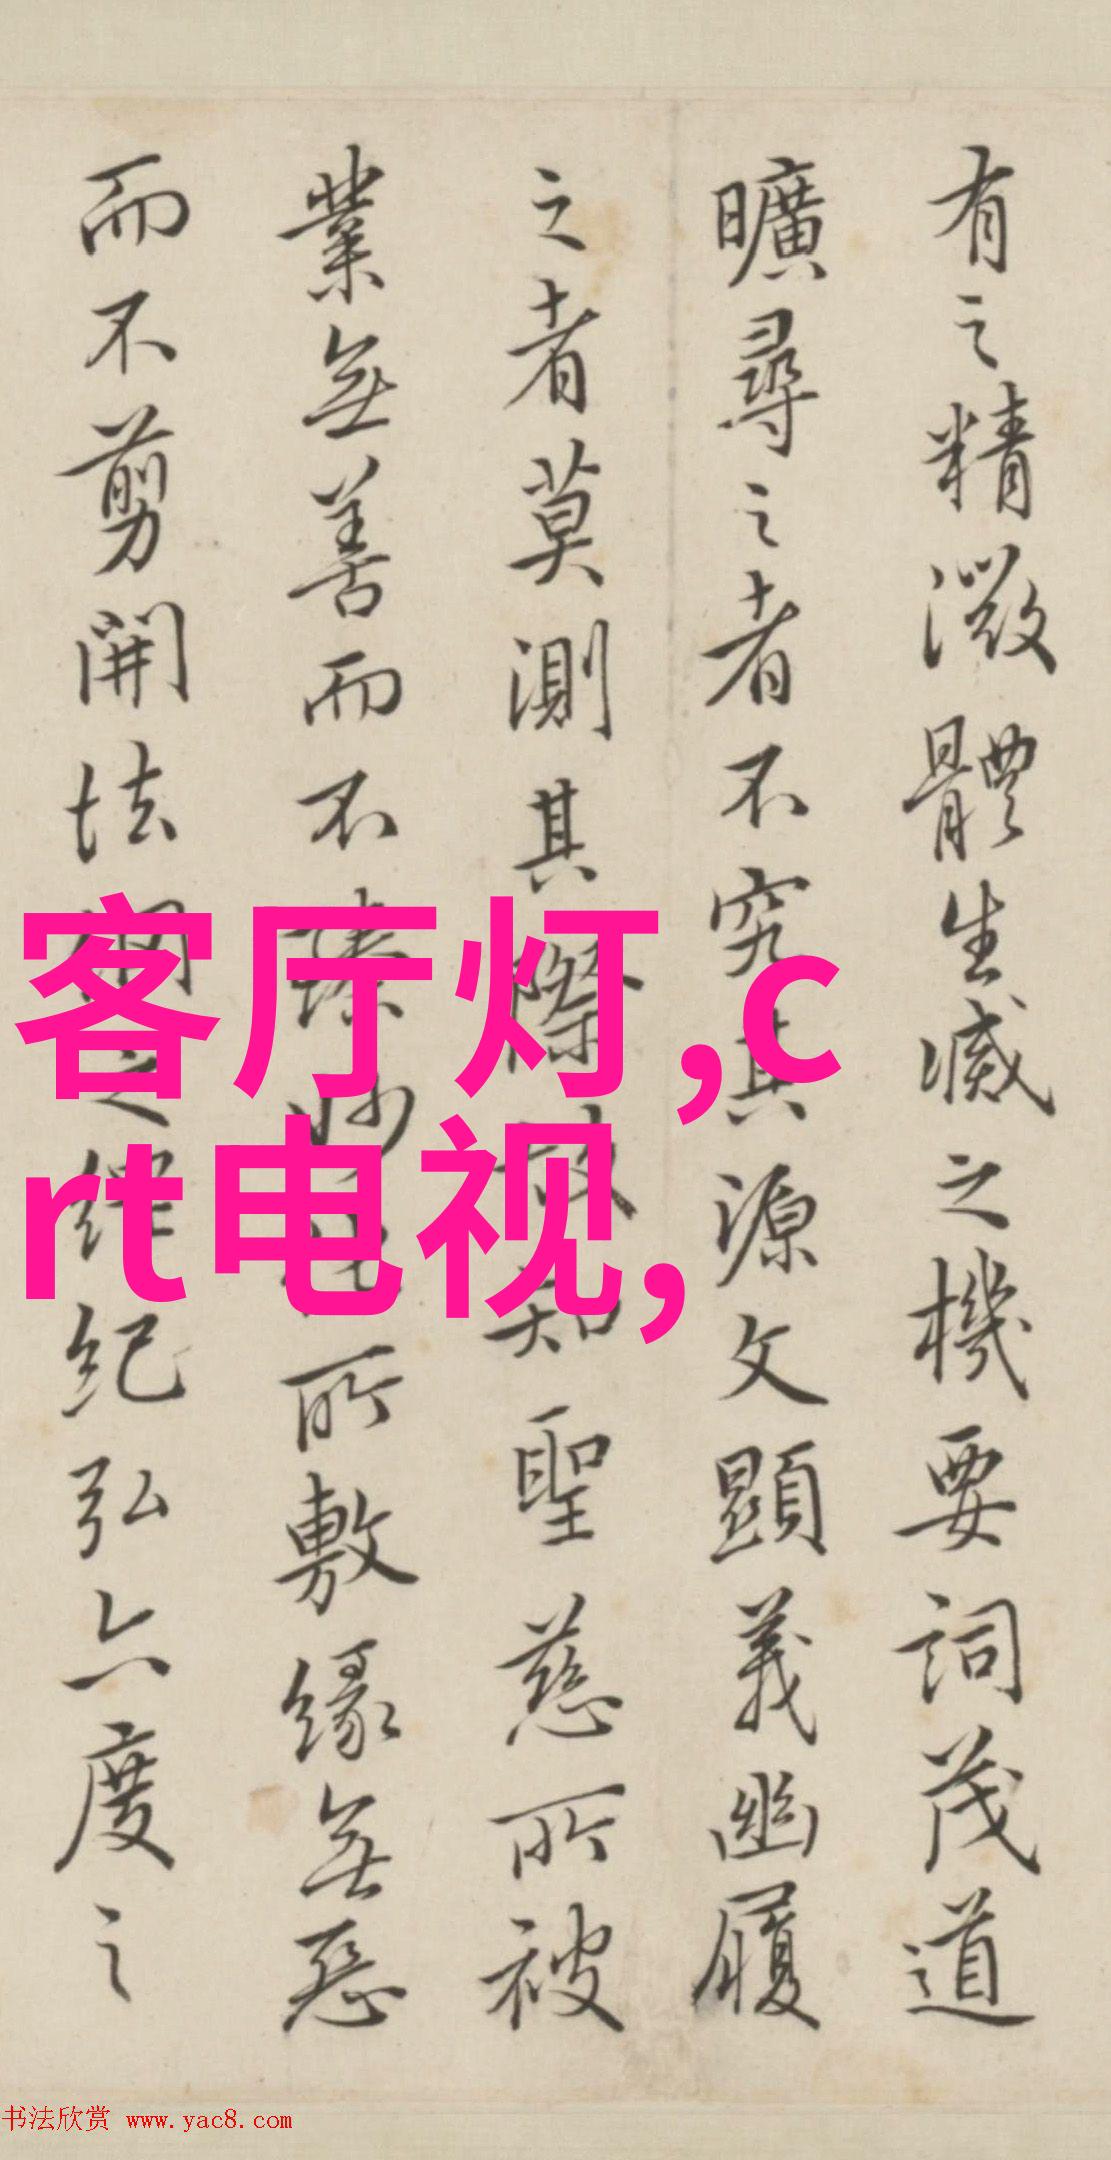 有之精微體生滅之機要詞茂道
曠尋之者不究其源文顯義幽履
之者莫測其際故知聖慈所被
業無善而不臻妙化所敷緣無惡
而不剪開法網之綱紀弘六度之
客厅灯,c
rt电视,
书法欣赏 www.yac8.com